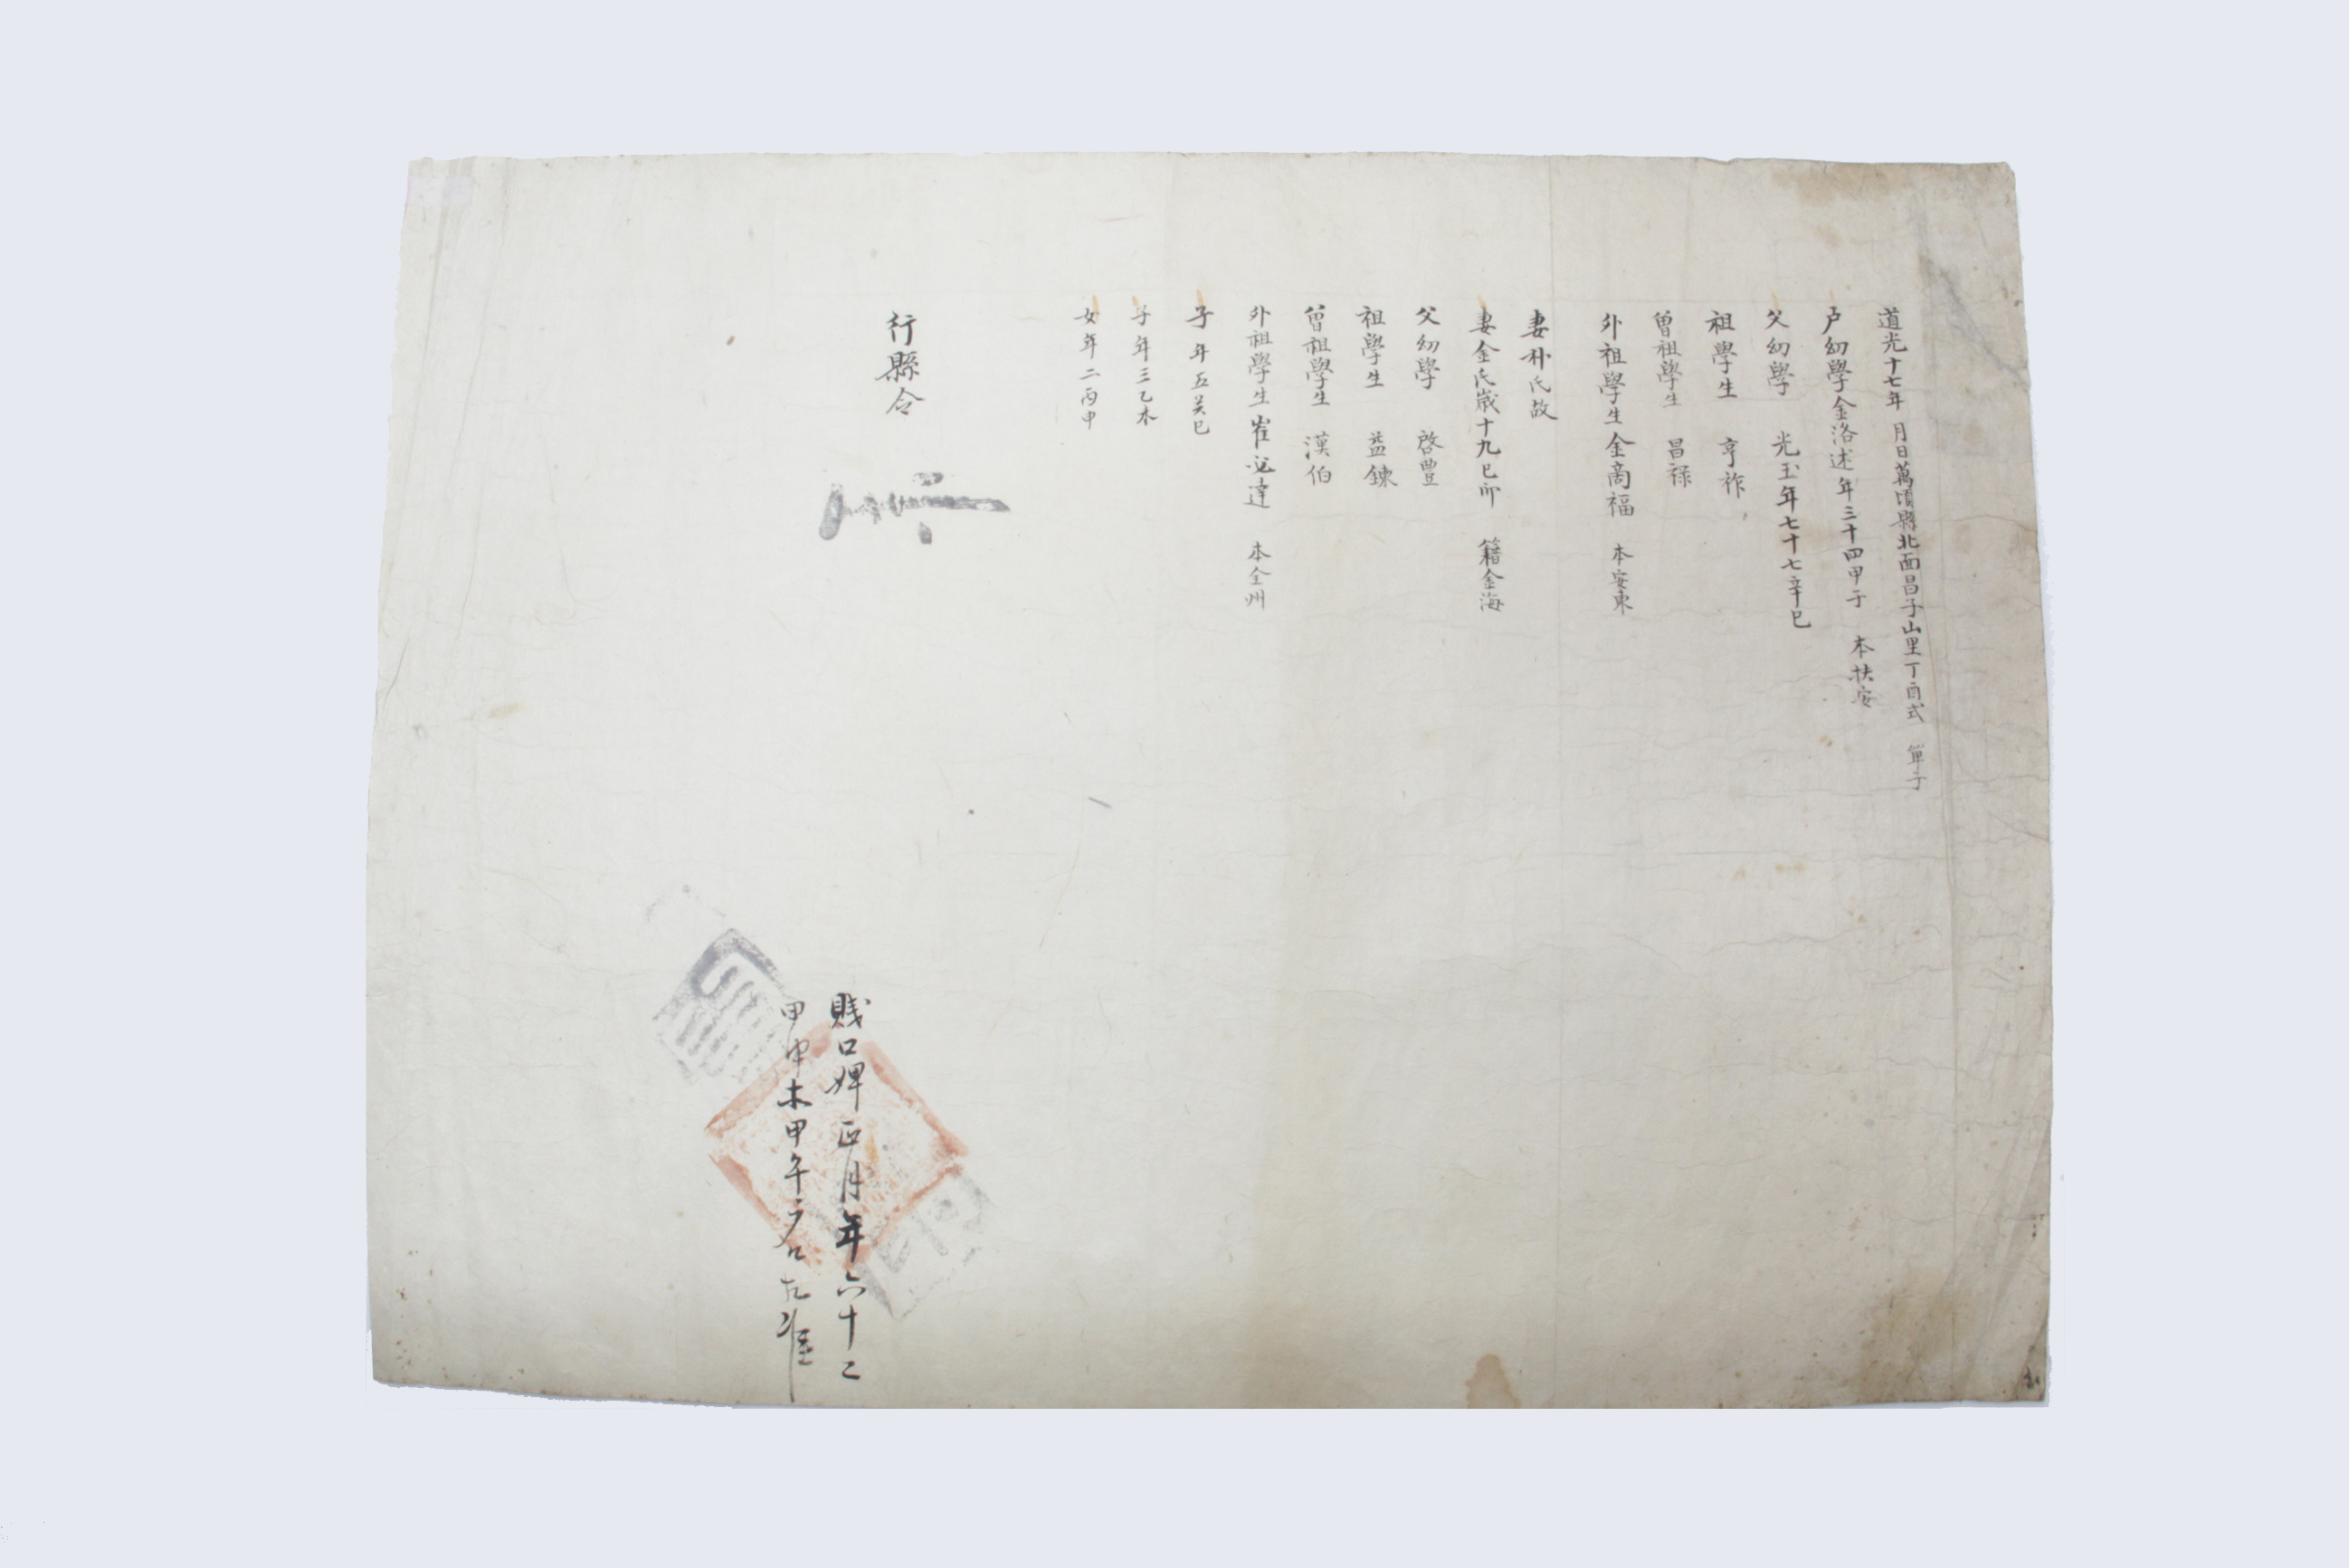 道光十七年 月日萬頃縣北面昌子山里丁酉式 單子
戶幼學金洛述年三十四甲子 本扶安
父幼學 光玉年七十七辛巳
祖學生 亨祚
曾祖學生 昌祿
外祖學生金商福 本安東
妻朴氏故
妻金氏歲十九己卯 籍金海
父幼學 啓豊
祖學生 益鍊
曾祖學生 漢伯
外祖學生崔必達 本全州
子年五癸巳
子年三乙未
女年二丙申
行縣令
賤口婢正月年六十二
甲申木甲午戶口相準